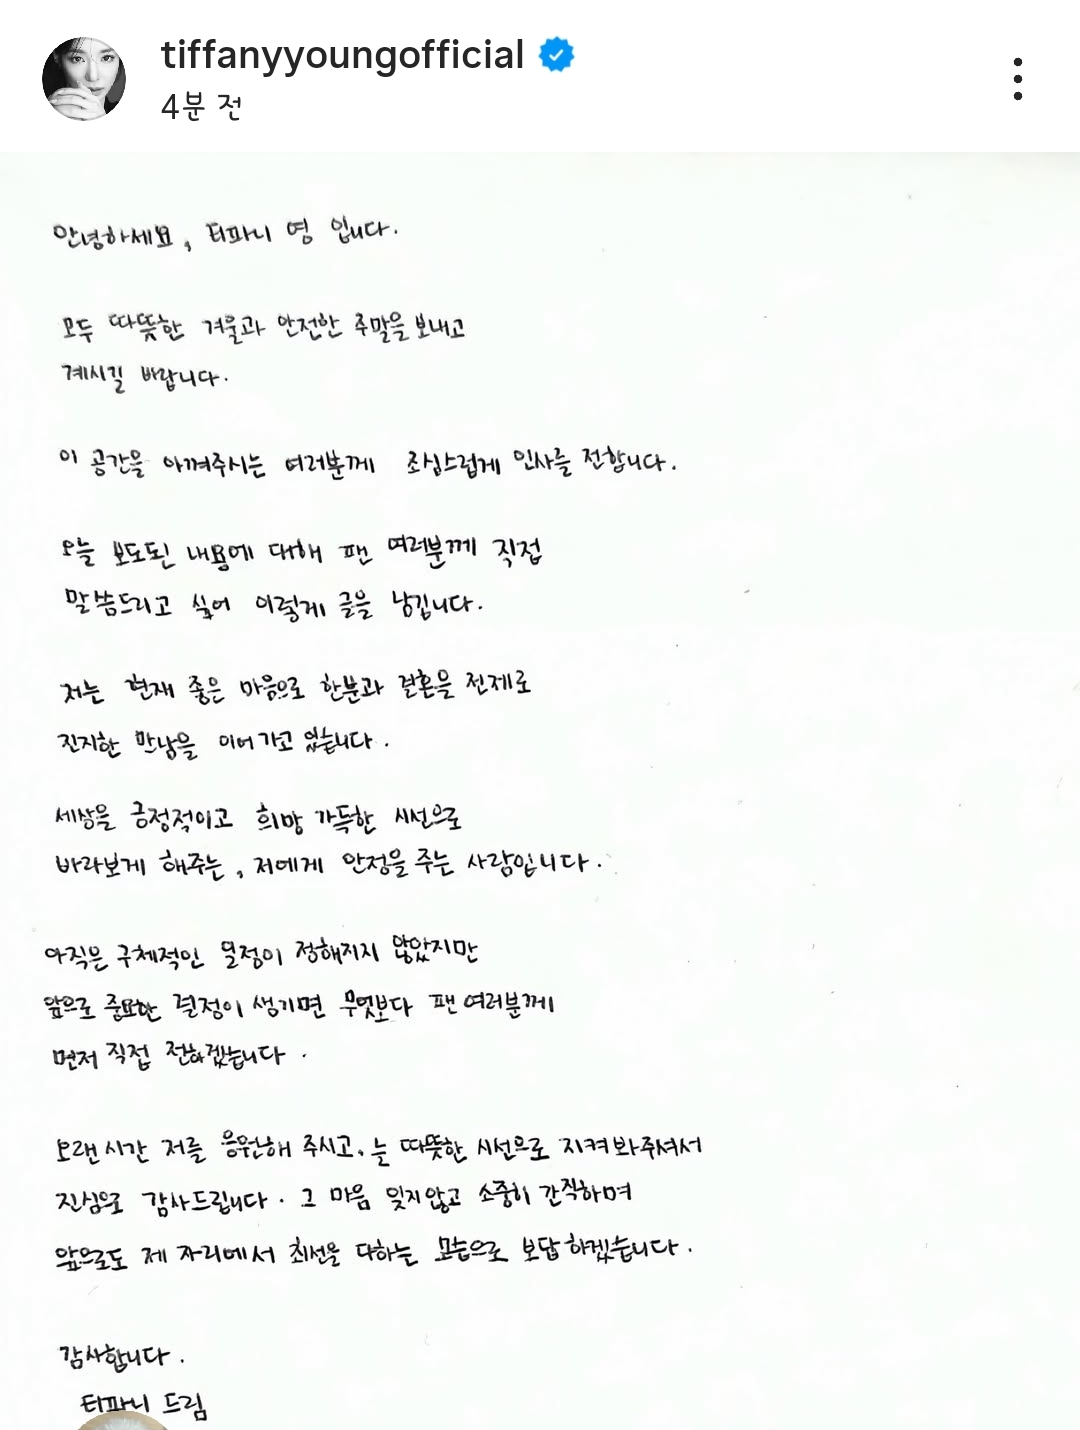 tiffanyyoungofficial
4분 전
안녕하세요, 티파니 영 입니다.
모두 따뜻한 겨울과 안전한 주말을 보내고
계시길 바랍니다.
이 공간을 아껴주시는 여러분께 조심스럽게 인사를 전합니다.
오늘 보도된 내용에 대해 팬 여러분께 직접
말씀드리고 싶어 이렇게 글을 남깁니다.
저는 현재 좋은 마음으로 한분과 결혼을 전제로
진지한 만남을 이어가고 있습니다.
세상을 긍정적이고 희망 가득한 시선으로
바라보게 해주는, 저에게 안정을 주는 사람입니다.
아직은 구체적인 일정이 정해지지 않았지만
앞으로 중요한 결정이 생기면 무엇보다 팬 여러분께
먼저 직접 전하겠습니다.
오랜 시간 저를 응원해 주시고, 늘 따뜻한 시선으로 지켜봐주셔서
진심으로 감사드립니다. 그 마음 잊지 않고 소중히 간직하며
앞으로도 제 자리에서 최선을 다하는 모습으로 보답하겠습니다.
감사합니다.
티파니 드림